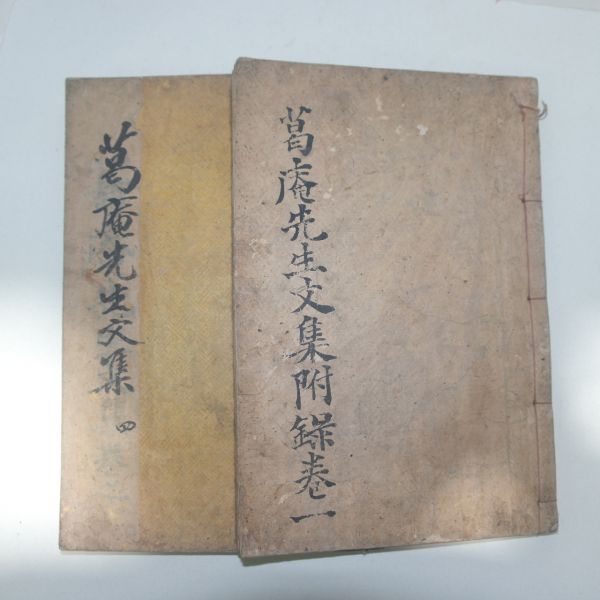 葛庵先生文集
四
葛庵先生文集附錄卷一